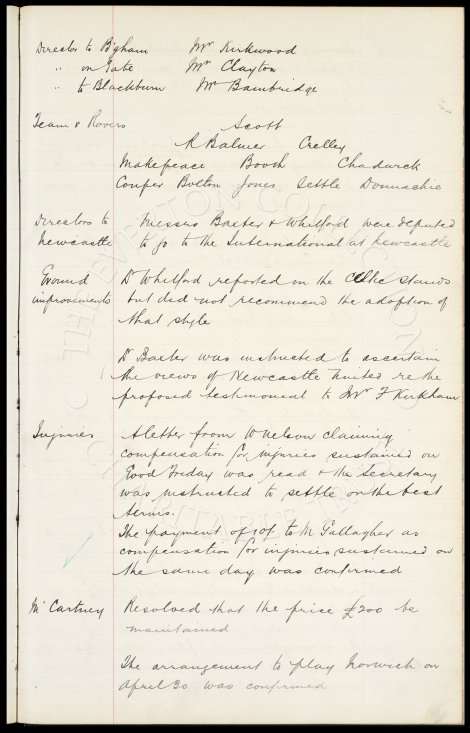 Director to B'gham Mr Kirkwood
" on Gate Mr Clayton
" to Blackburn Mr Bainbridge
Team v Rovers Scott
R Balmer Crelley
Makepeace Booth Chadwick
Couper Bolton Jones Settle Donnachie
Directors to Messrs Baxter & Whitford were deputed
Newcastle to go to the International at Newcastle
Ground Dr Whitford reported on the Celtic stands
improvements but did not recommend the adoption of
that style
Dr Baxter was instructed to ascertain
the views of Newcastle United re the
proposed testimonial to Mr F Kirkham
Injuries A letter from W Nelson claiming
compensation for injuries sustained on
Good Friday was read & the Secretary
was instructed to settle on the best
terms.
The payment of 10/- to M Gallagher as
compensation for injuries sustained on
the same day was confirmed
McCartney Resolved that the price £200 be
maintained
The arrangement to play Norwich on
April 30 was confirmed
THE EVERTON COLLECTION
CHARITABLE TRUST